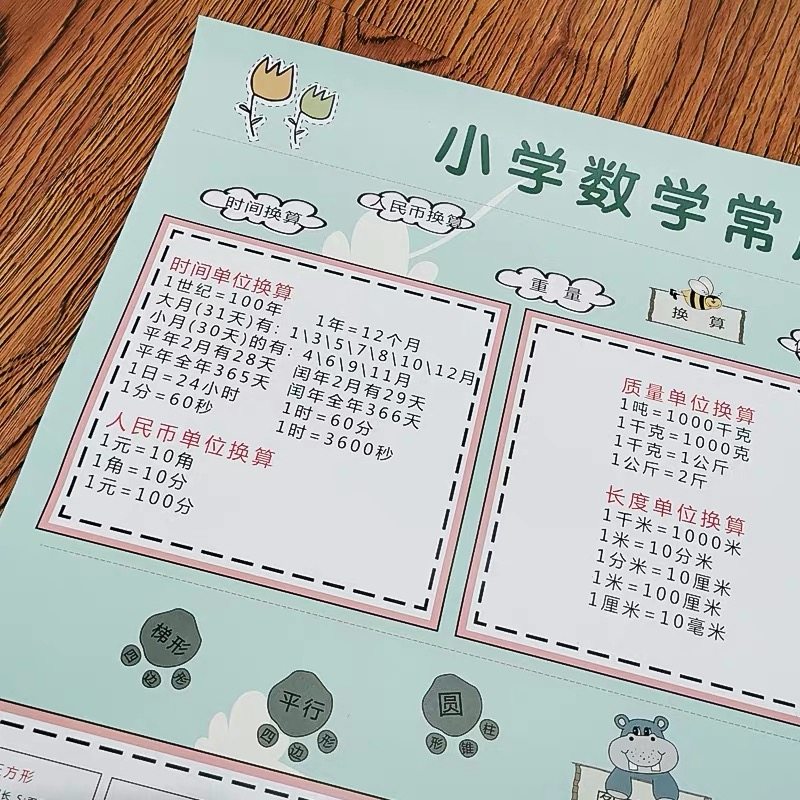 小学数学常
时间换算
人民币换算
重量
换 算
时间单位换算
1世纪=100年 1年=12个月
大月(31天)有: 1\3\5\7\8\10\12月
小月(30天)的有: 4\6\9\11月
平年2月有28天 闰年2月有29天
平年全年365天 闰年全年366天
1日=24小时 1时=60分
1分=60秒 1时=3600秒
人民币单位换算
1元=10角
1角=10分
1元=100分
质量单位换算
1吨=1000千克
1千克=1000克
1千克=1公斤
1公斤=2斤
长度单位换算
1千米=1000米
1米=10分米
1分米=10厘米
1米=100厘米
1厘米=10毫米
梯形
四边形
平行
四边形
圆
形锥柱
方形